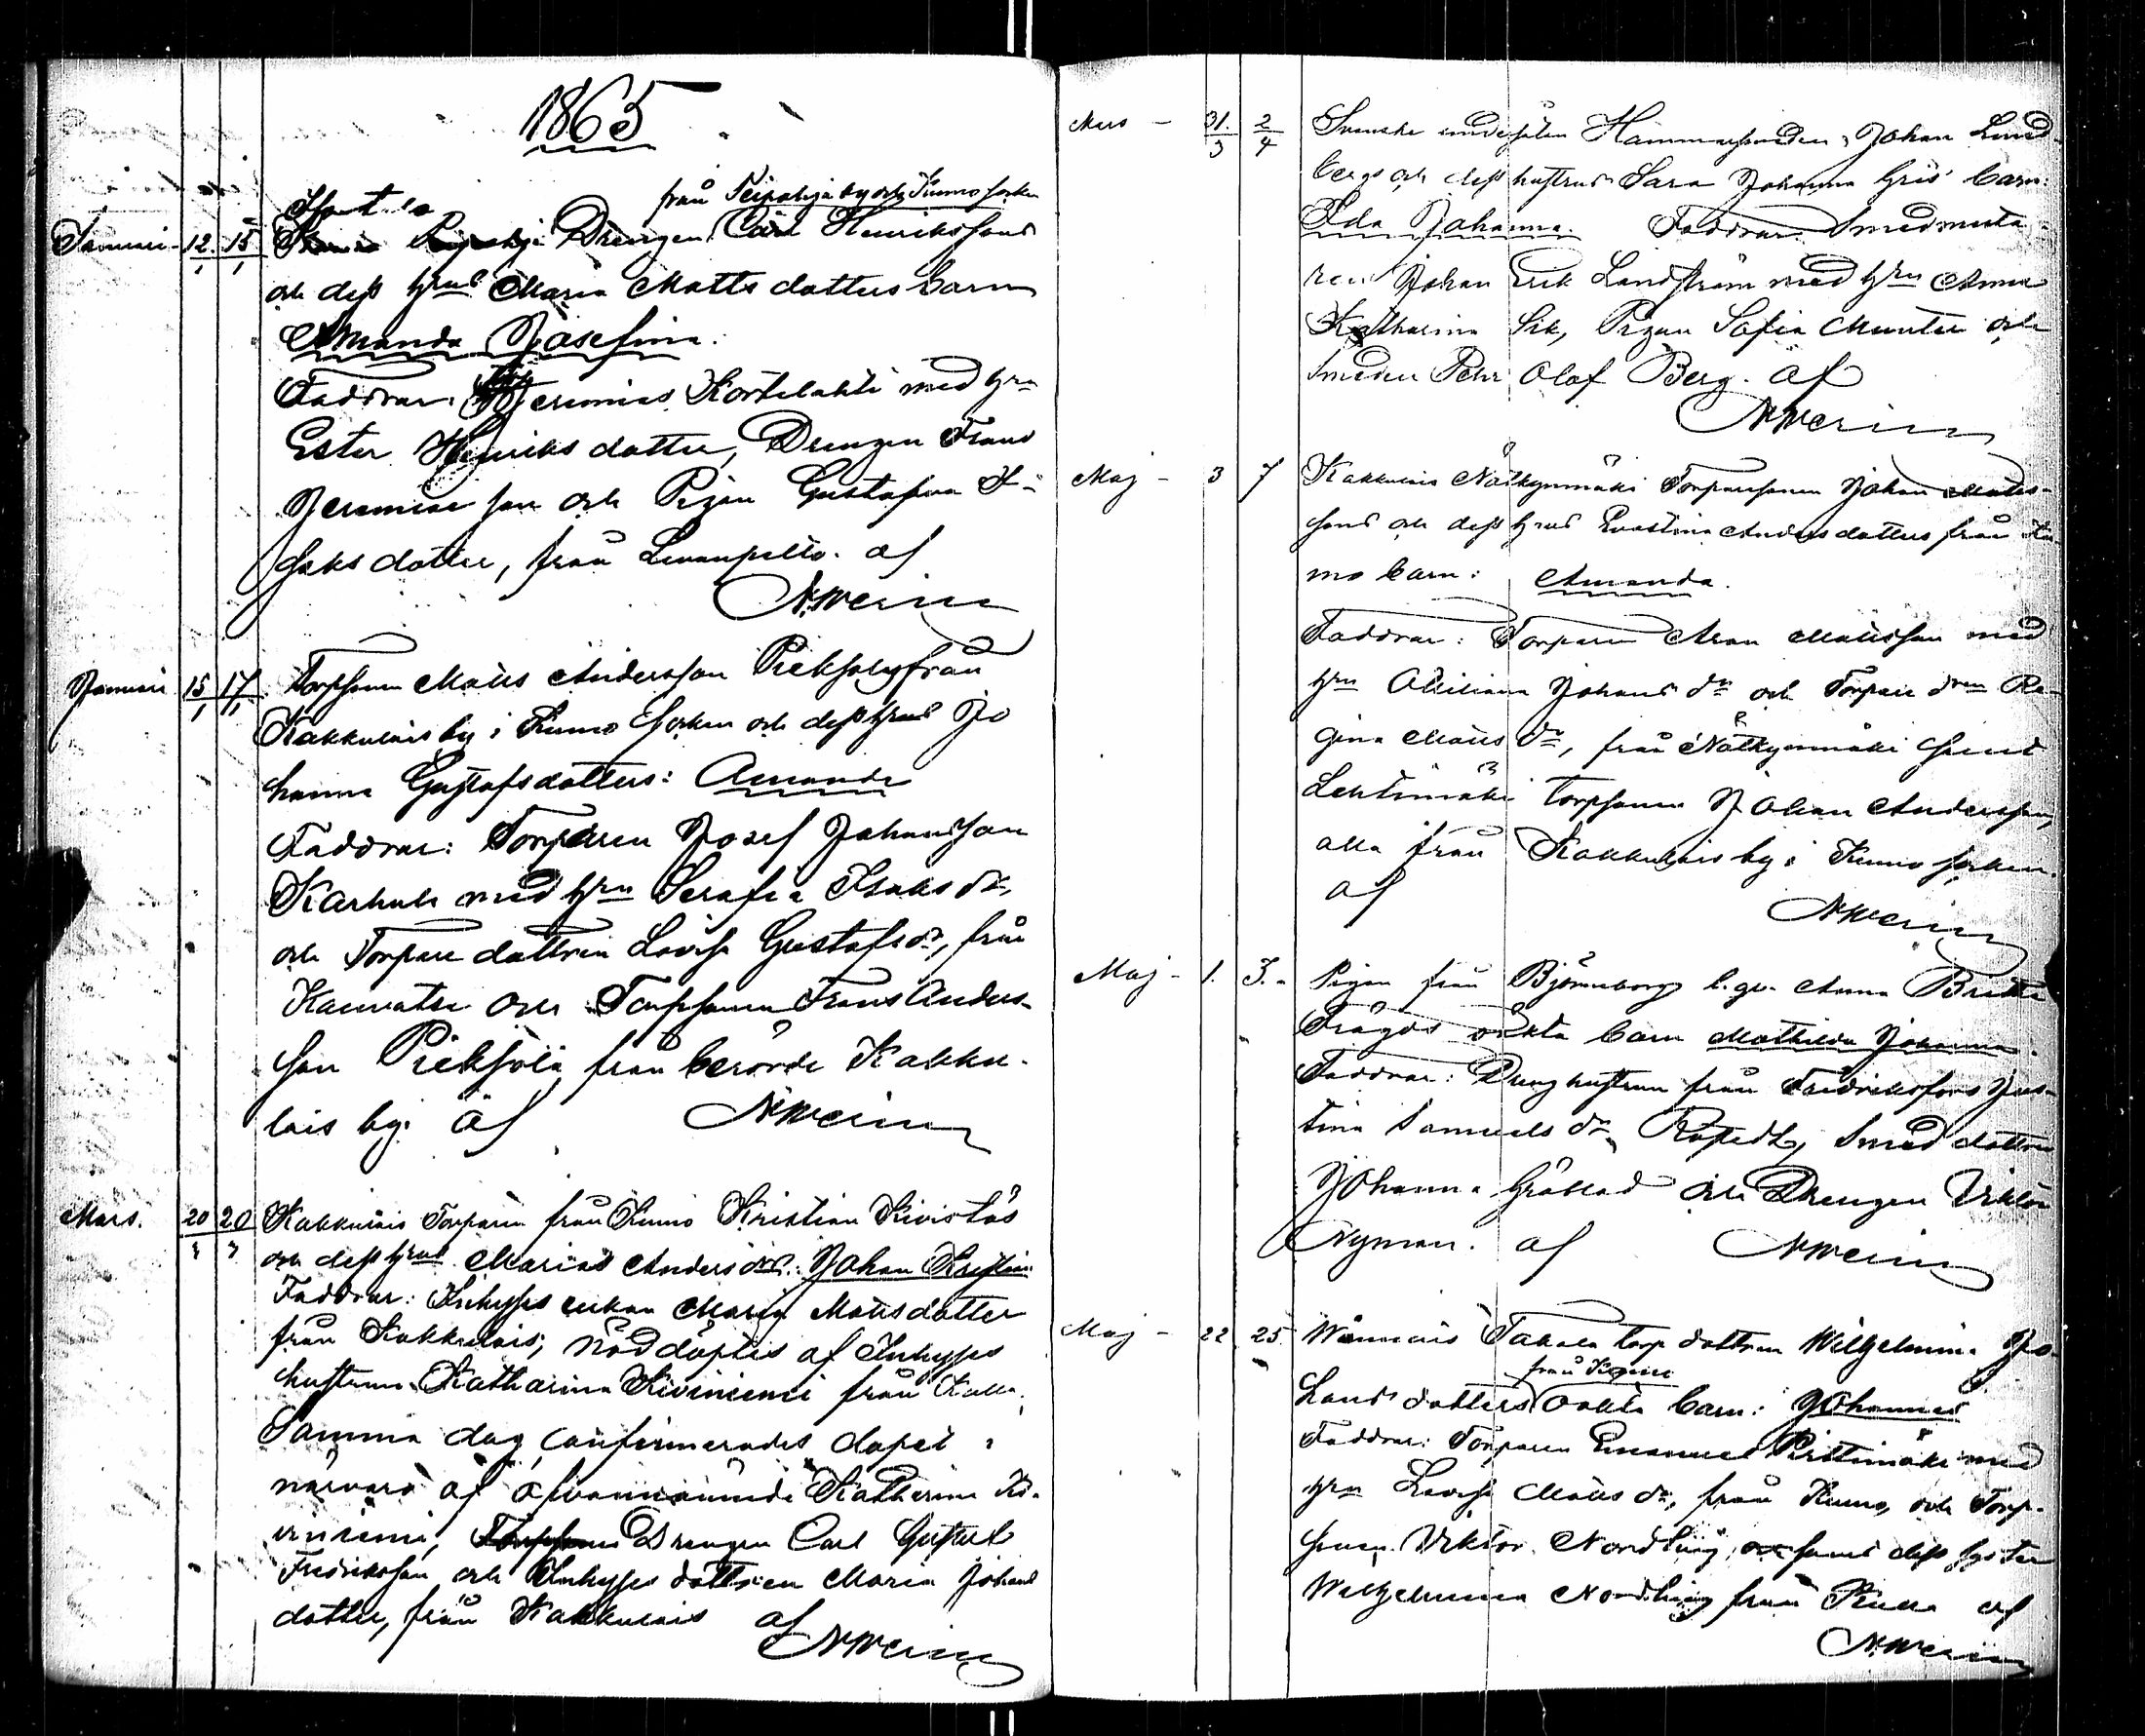 1865
från Peipohja by och Kumo socken
Januari 12. 15 Drengen Carl Henrikssons
1 1
och dess hrus Maria Matts dotters barn
Amanda Josefina.
Faddrar: Jeremias Kortelahti med hrn
Ester Henriks dotter, Drengen Frans
Jeremiae son och Pigan Gustafva I-
saks dotter, från Levanpelto. af
N Merin
Januari 15 17 Torpsonen Matts Andersson Pieksola från
1 1
Kakkulais by i Kumo Socken och dess hrus Jo
hanna Gustafsdotters: Amanda
Faddrar: Torparen Josef Johansson
Karhula med hrn Serafia Isaks dr,
och Torpare dottren Lovisa Gustafs dr, från
och Torpsonen Frans Anders-
son Pieksola från berörde Kakku-
lais by. af N Merin
Mars. 20 20 Kakkulais Torparen från Kumo Kristian Kivistös
3 3
och dess hrus Marias Anders drs: Johan Kristian
Faddrar: Inhyses enkan Maria Matts dotter
från Kakkulais; Nöddöptes af Inhyses
hustrun Katharina Kiviniemi från Kakku.
Samma dag confirmerades dopet i
närvaro af ofvannämnde Katharina Ki-
viniemi, Drengen Carl Gustaf
Fredriksson och Inhyses dottren Maria Johans
dotter, från Kakkulais af
N Merin
Mars - 31. 2 Svenske undersåten Hammarsmeden Johan Lind-
3 4
bergs och dess hustrus Sara Johanna Gris' barn:
Ida Johanna. Faddrar: Smedmästa-
ren Johan Erik Landström med hrn Anna
Katharina Sik, Pigan Sofia Munter och
Smeden Pehr Olof Berg. af
N Merin
Maj - 3 7 Kakkulais Nätkynmäki Torparesonen Johan Matts-
sons och dess hrus Evastina Anders dotters från Ku
mo barn: Amanda.
Faddrar: Torparen Aron Mattsson med
hrn Johans dr och Torpare drn Re-
gina Matts dr, från Nätkynmäki samt
Lehtimäki Torpsonen Johan Andersson,
alla från Kakkulais by i Kumo socken.
af N Merin
Maj - 1. 3. Pigan från Björneborg Anna Britta
Frågds oäkta barn Mathilda Johanna.
Faddrar: Dreng hustrun från Fredriksfors Jus-
tina Samuels dr Smed dottren
Johanna Gröblad och Drengen Viktor
Nyman. af N Merin
Maj - 22 25. Torp dottren Wilhelmina Jo-
från Kumo
hans dotters oäkta barn: Johannes
Faddrar: Torparen Emanuel Pirttimäki med
hrn Lovisa Matts dr, från Kumo, och Torp-
sonen Viktor Nordling, samt dess syster
Wilhelmina Nordling från af
N Merin